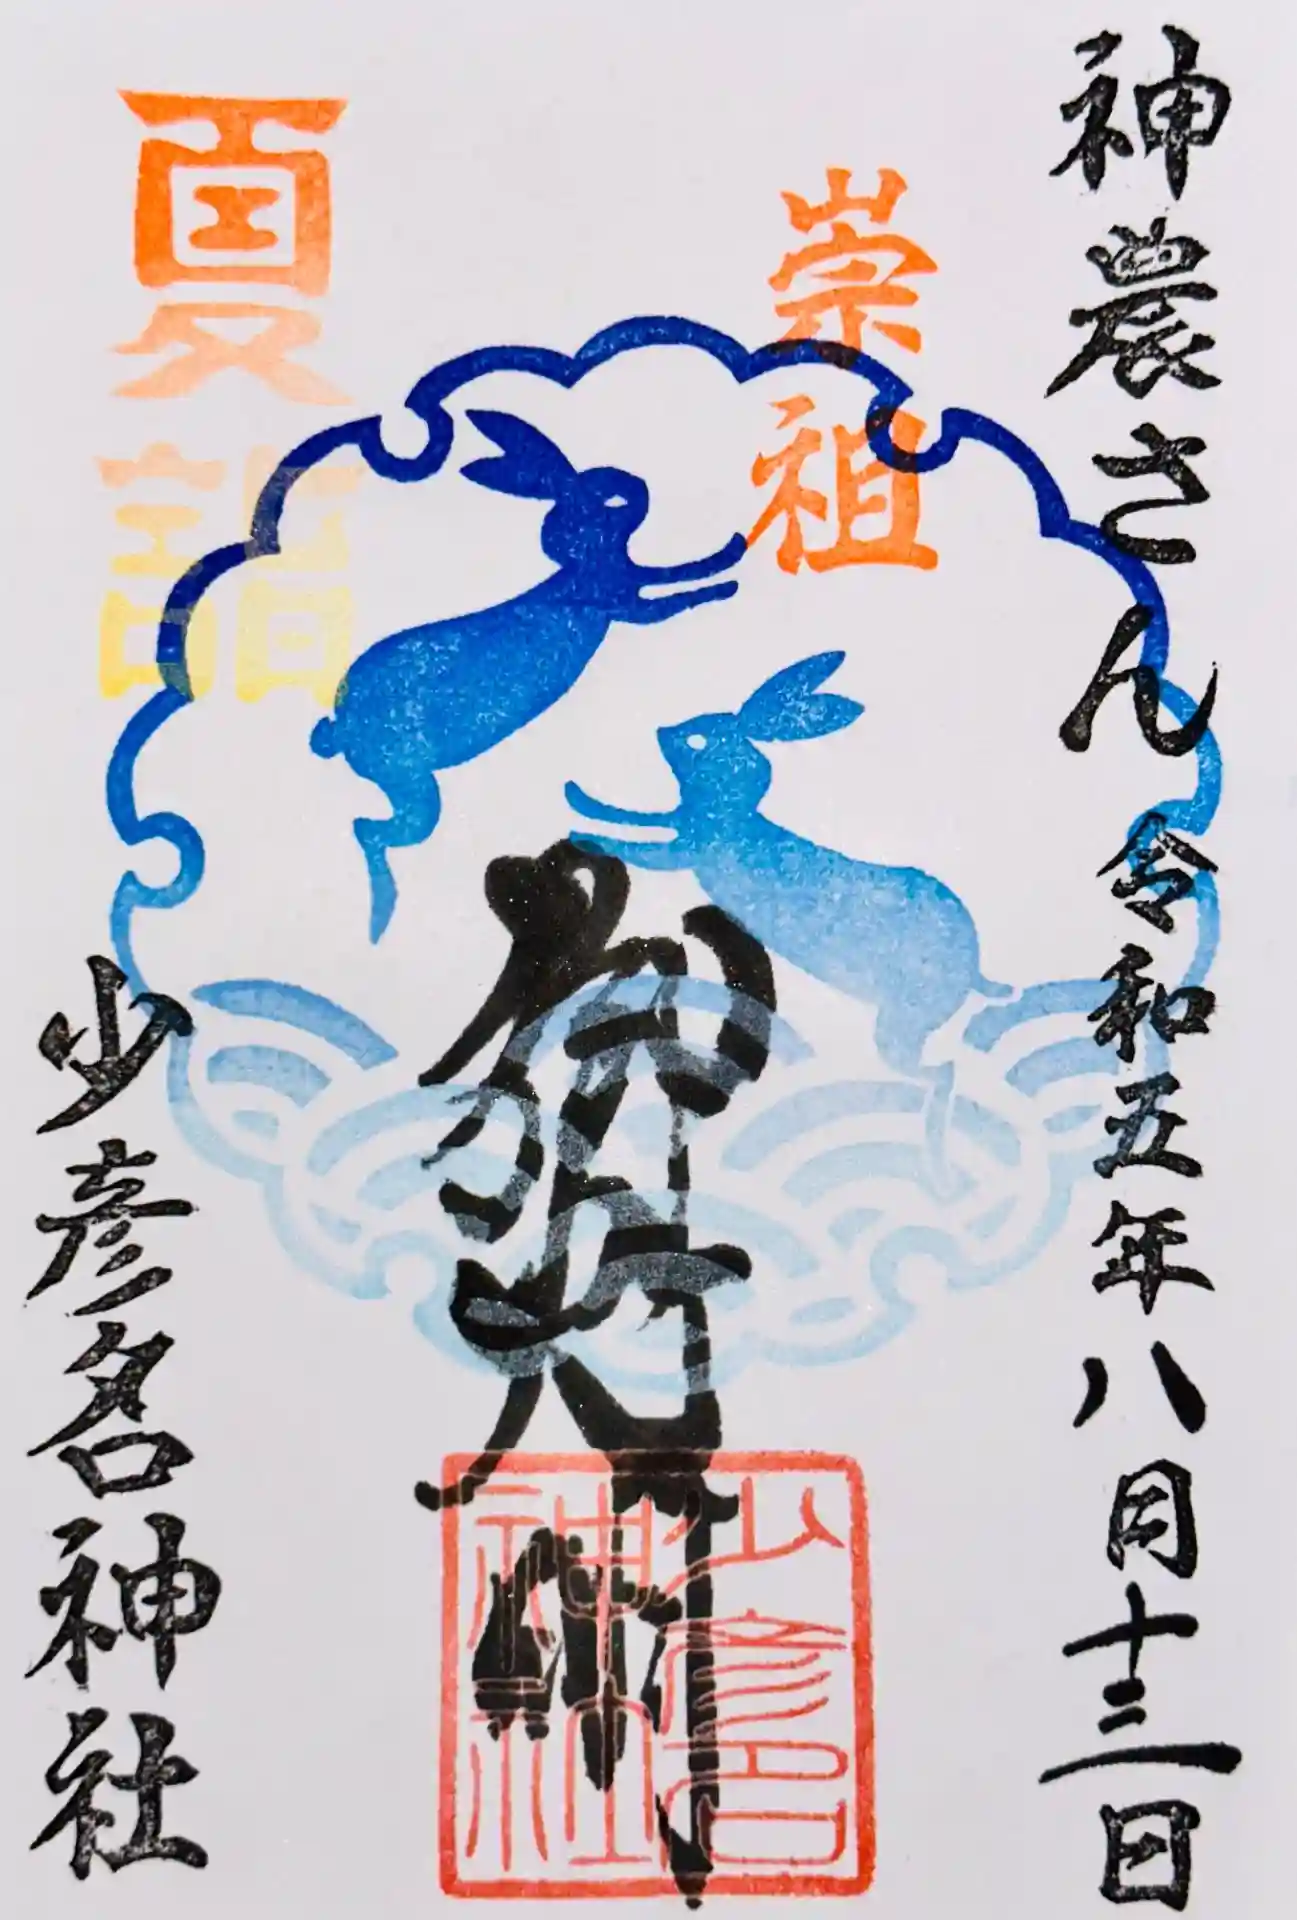 神農さん 令和五年八月十三日
崇祖
夏詣
少彦名神社
少彦名
神社